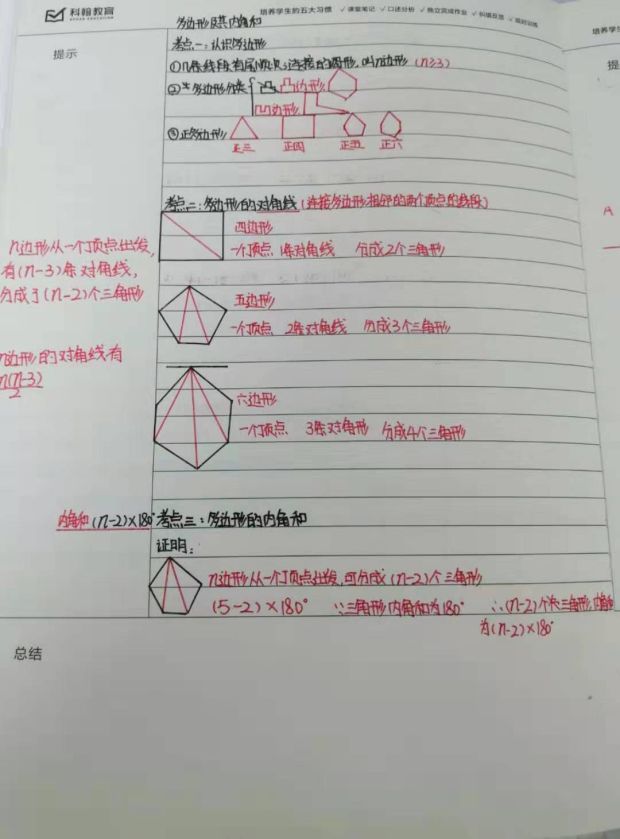 科翰教育
培养学生的五大习惯 ✓课堂笔记 ✓口述分析 ✓独立完成作业 ✓纠错反思
培养学
提示
提
多边形及其内角和
考点一:认识多边形
①n条线段首尾顺次连接的图形,叫n边形(n≥3)
②多边形分类 凸边形
凹边形
③正多边形
正三 正四 正五 正六
考点二:多边形的对角线(连接多边形相邻的两个顶点的线段)
四边形
一个顶点 1条对角线 分成2个三角形
n边形从一个顶点出发,
有(n-3)条对角线,
分成了(n-2)个三角形
五边形
一个顶点 2条对角线 分成3个三角形
n边形的对角线有
n(n-3)
2
六边形
一个顶点 3条对角形 分成4个三角形
内角和(n-2)×180°
考点三:多边形的内角和
证明:
n边形从一个顶点出发,可分成(n-2)个三角形
(5-2)×180° ∵三角形内角和为180° ∴(n-2)个三角形内角和
为(n-2)×180°
总结
A